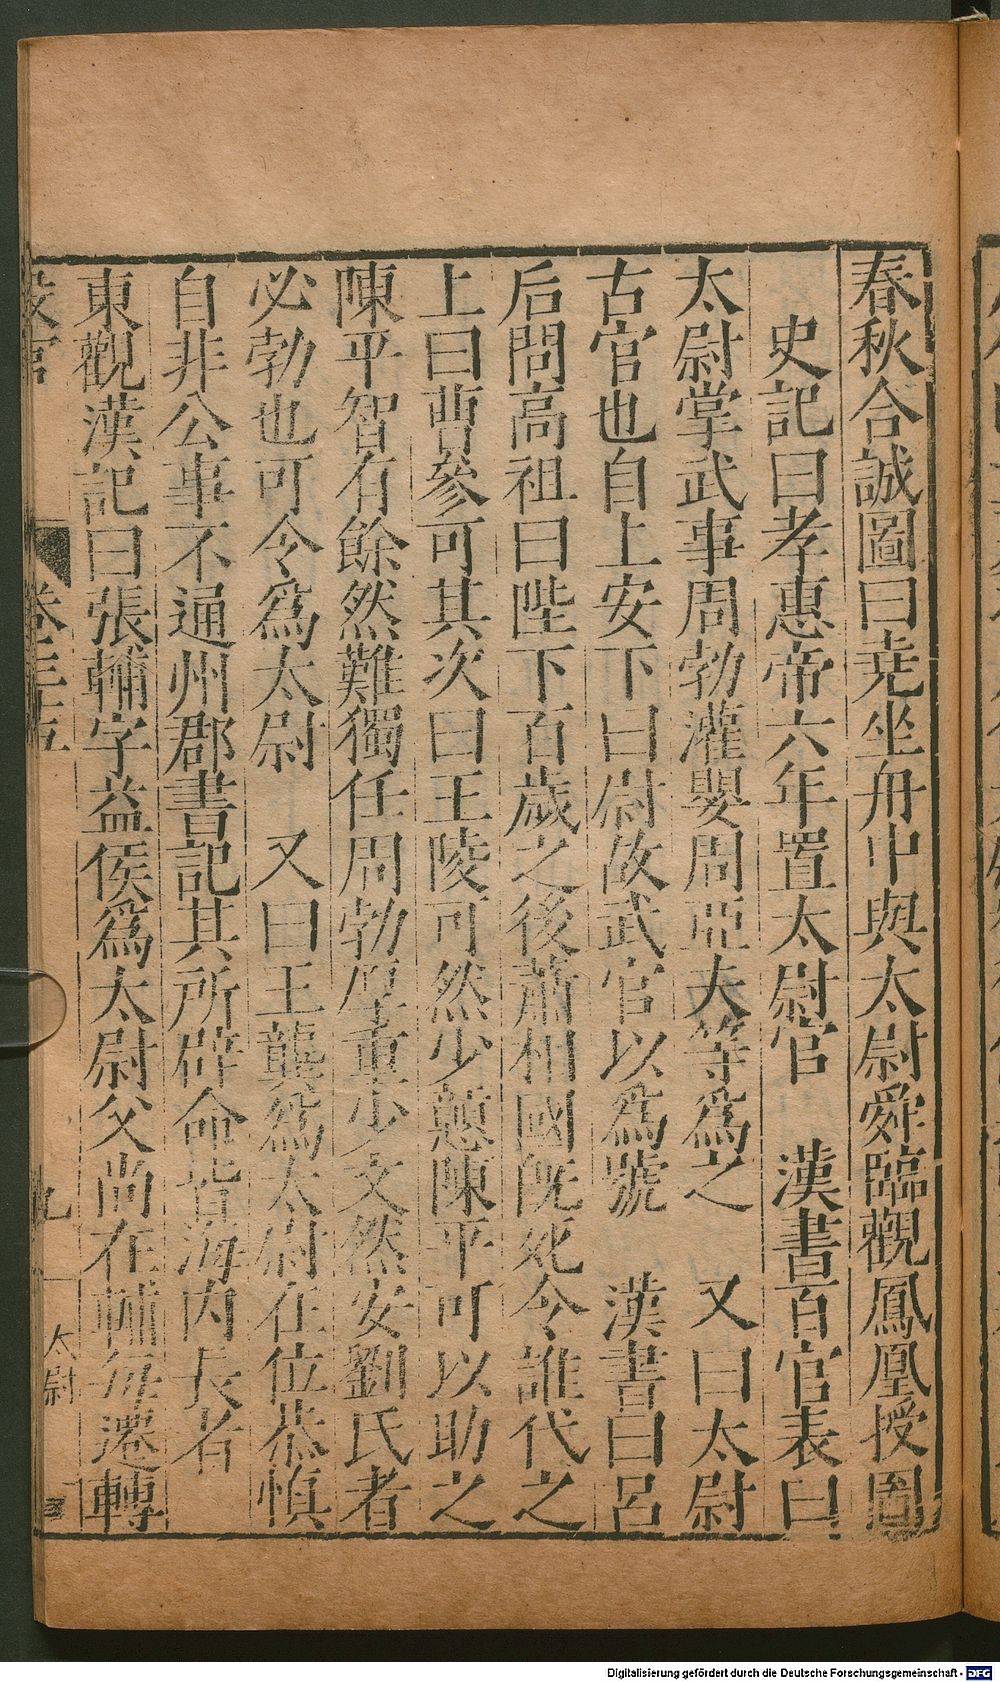 春秋合誠圖曰堯坐舟中與太尉舜臨觀鳳凰授圖
史記曰孝惠帝六年置太尉官　漢書百官表曰
太尉掌武事周勃灌嬰周亞夫等為之　又曰太尉
古官也自上安下曰尉故武官以為號　漢書曰呂
后問高祖曰陛下百歲之後蕭相國旣死令誰代之
上曰曹參可其次曰王陵可然少戇陳平可以助之
陳平智有餘然難獨任周勃厚重少文然安劉氏者
必勃也可令為太尉　又曰王龔為太尉在位恭慎
自非公事不通州郡書記其所辟命皆海內長者
東觀漢記曰張輔字益侯為太尉父尚在輔每遷轉
設官
卷三五
九
太尉
Digitalisierung gefördert durch die Deutsche Forschungsgemeinschaft - DFG